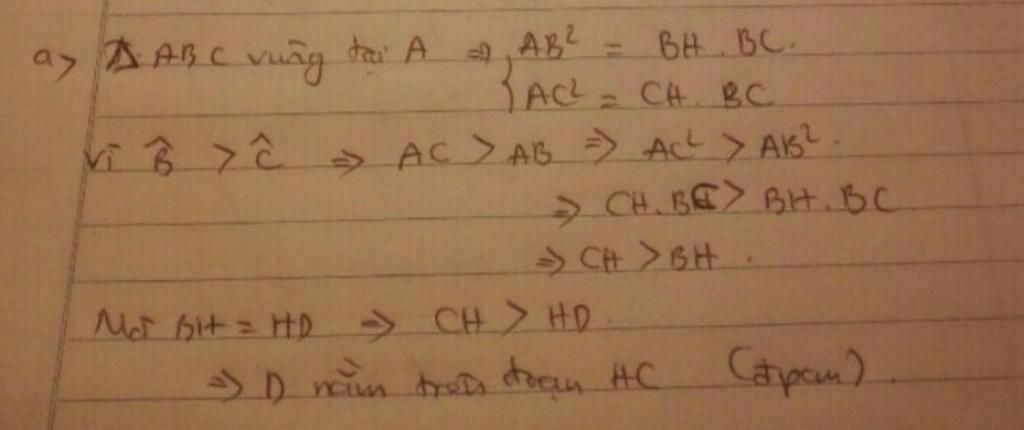 a> Δ ABC vuông tại A ⇒ { AB² = BH . BC.
AC² = CH . BC
Vì B̂ > Ĉ ⇒ AC > AB ⇒ AC² > AB².
⇒ CH.BC > BH.BC
⇒ CH > BH .
Mà BH = HD ⇒ CH > HD.
⇒ D nằm trên đoạn HC (đpcm) .